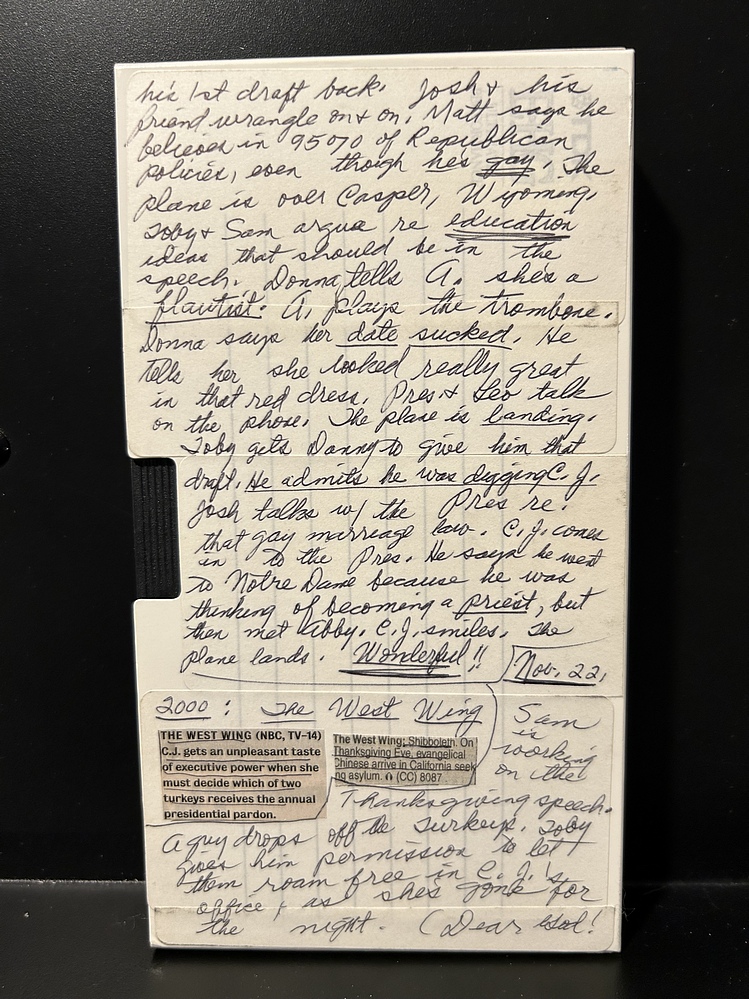 his 1st draft back. Josh & his
friend wrangle on & on. Matt says he
believes in 95% of Republican
policies, even though he's gay. The
plane is over Casper, Wyoming.
Toby & Sam argue re education
ideas that should be in the
speech. Donna tells A. she's a
flautist. A. plays the trombone.
Donna says her date sucked. He
tells her she looked really great
in that red dress. Pres. & Leo talk
on the phone. The plane is landing.
Toby gets Danny to give him that
draft. He admits he was digging C.J.
Josh talks w/ the Pres re.
that gay marriage law. C.J. comes
in to the Pres. He says he went
to Notre Dame because he was
thinking of becoming a priest, but
then met Abby. C.J. smiles. The
plane lands. Wonderful!!
Nov. 22,
2000: The West Wing
THE WEST WING (NBC, TV-14)
C.J. gets an unpleasant taste
of executive power when she
must decide which of two
turkeys receives the annual
presidential pardon.
The West Wing: Shibboleth. On
Thanksgiving Eve, evangelical
Chinese arrive in California seek
ng asylum. (CC) 8087
Sam
is
working
on the
Thanksgiving speech.
A guy drops off the turkeys. Toby
gives him permission to let
them roam free in C.J.'s
office, as she's gone for
the night. (Dear God!